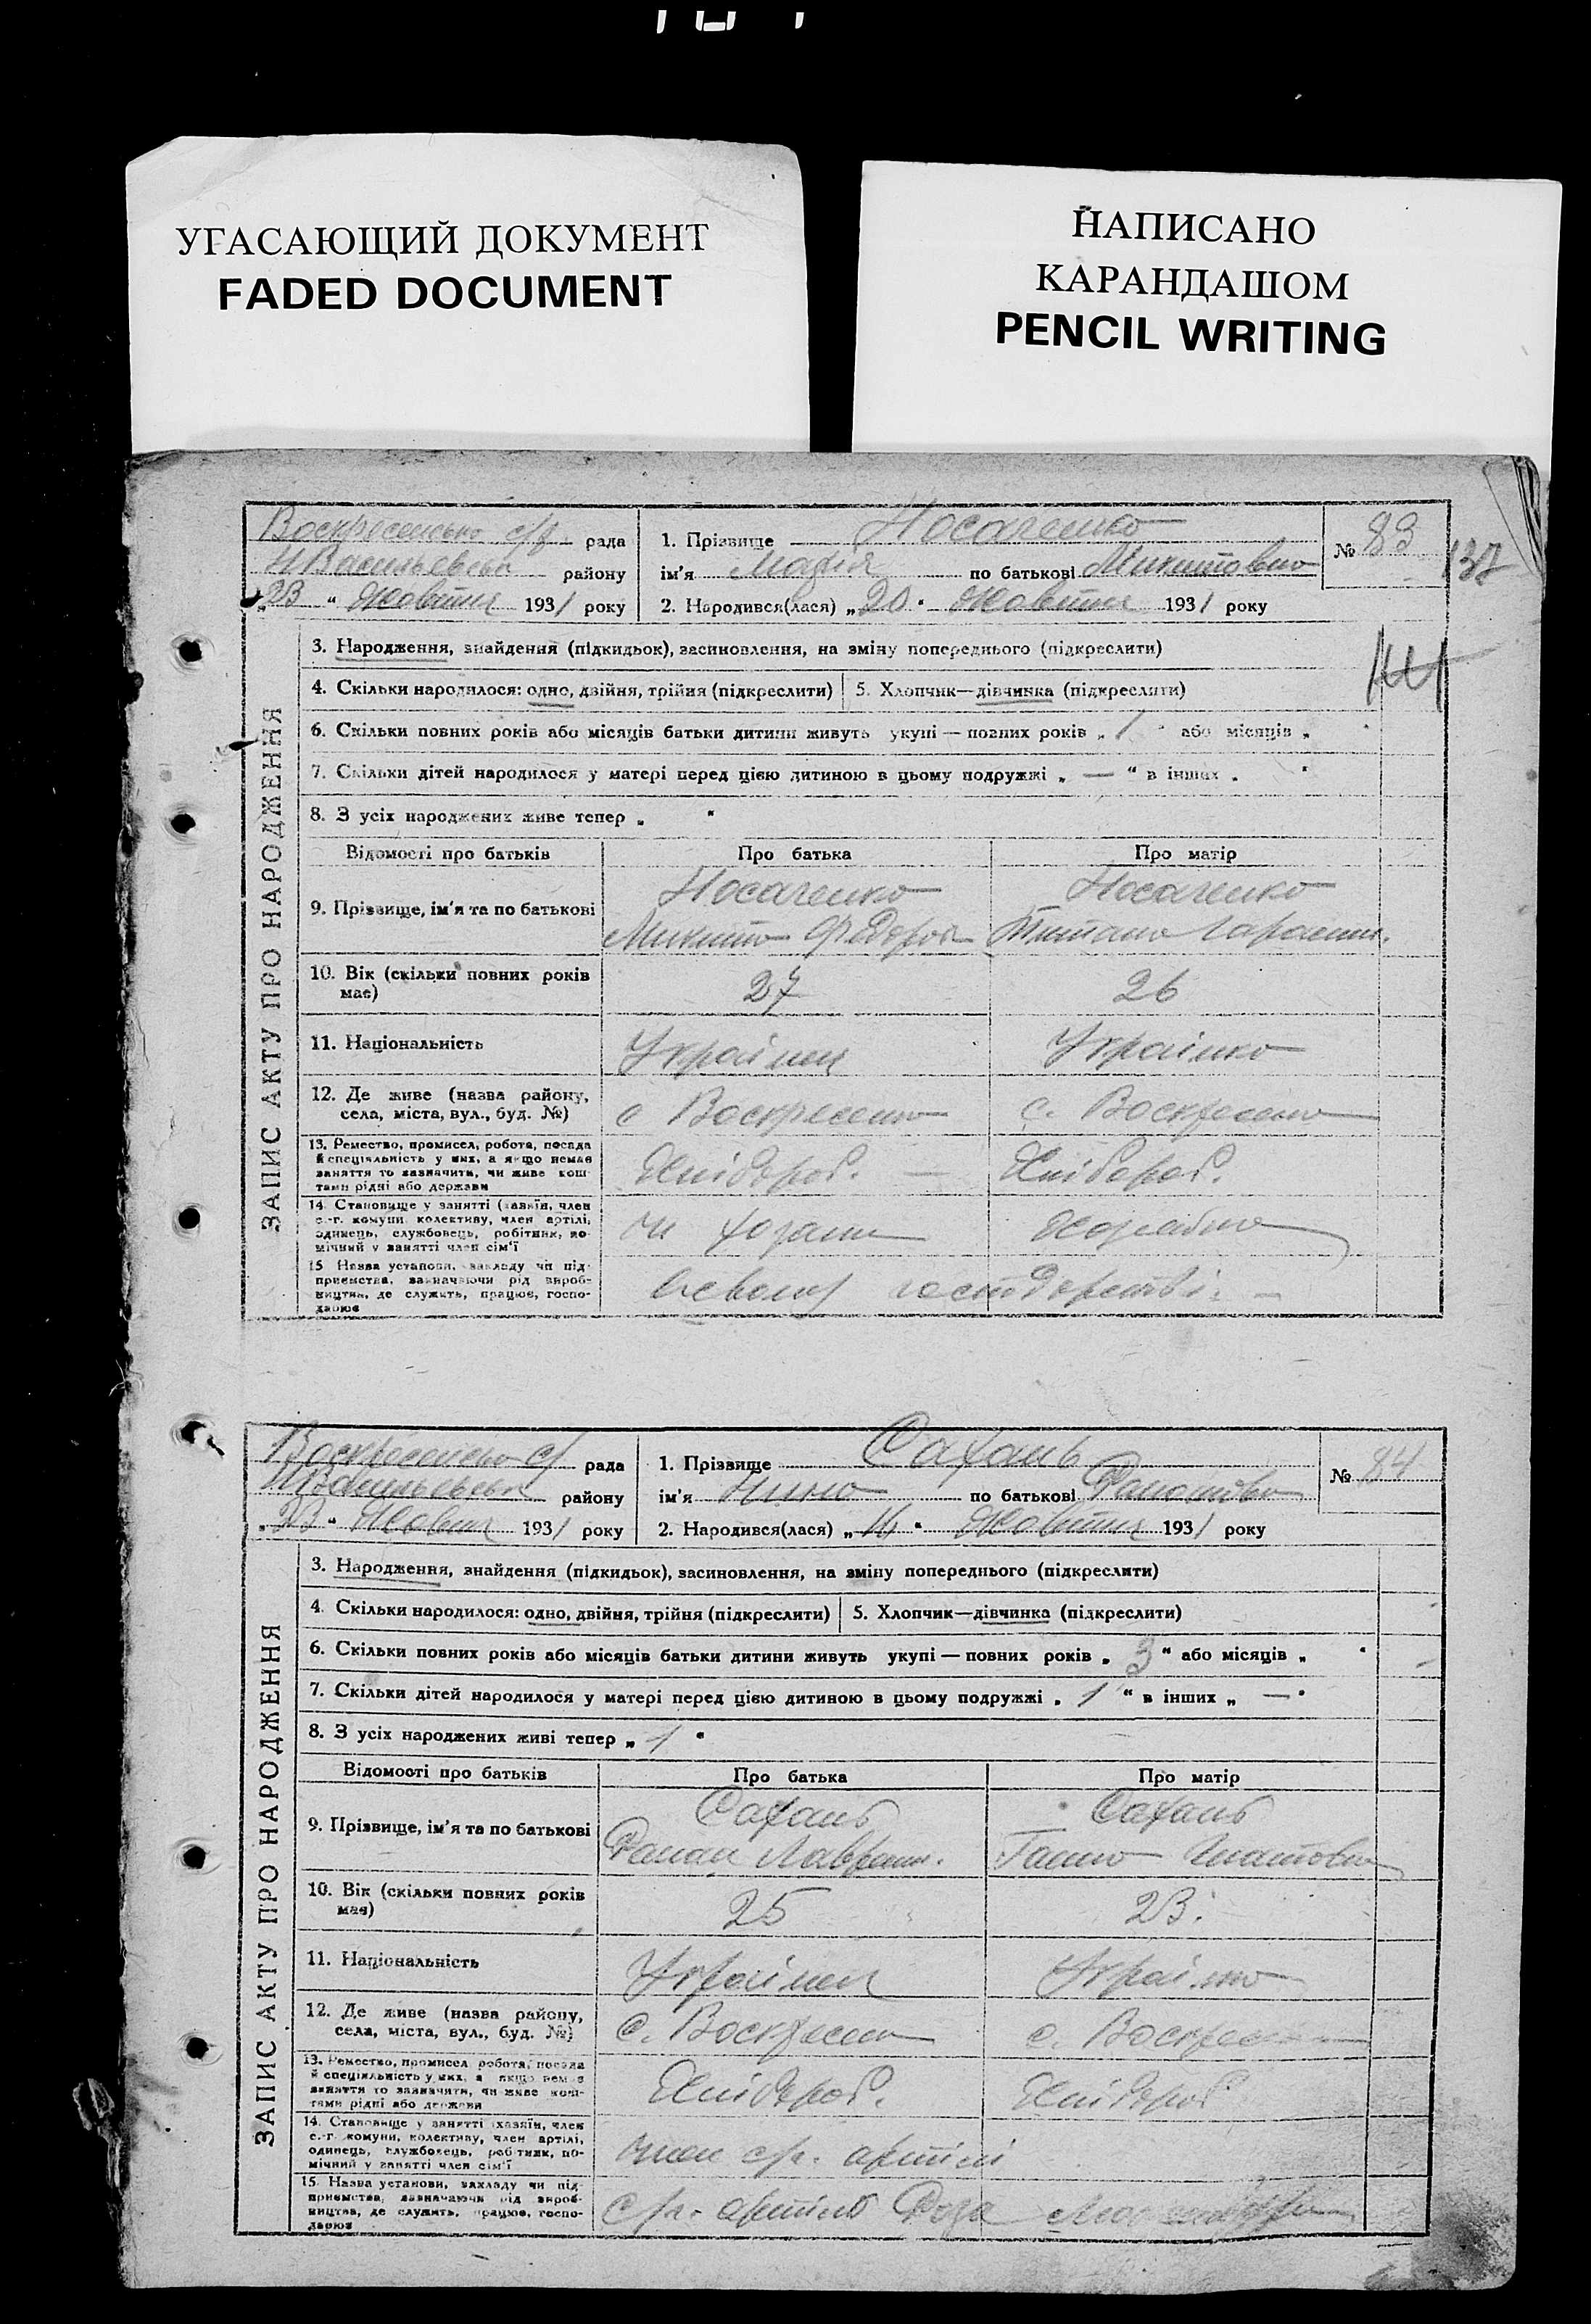 УГАСАЮЩИЙ ДОКУМЕНТ
FADED DOCUMENT
НАПИСАНО
КАРАНДАШОМ
PENCIL WRITING
ЗАПИС АКТУ ПРО НАРОДЖЕННЯ
рада
району
"23" Жовтня 1931 року
1. Прізвище Носаченко
ім'я Марія по батькові Микитовна
2. Народився(лася) „20" Жовтня 1931 року
№ 83
137
3. Народження, знайдення (підкидьок), засиновлення, на зміну попереднього (підкреслити)
4. Скільки народилося: одно, двійня, трійня (підкреслити)
5. Хлопчик—дівчинка (підкреслити)
6. Скільки повних років або місяців батьки дитини живуть укупі — повних років „ 1 " або місяців „ "
7. Скільки дітей народилося у матері перед цією дитиною в цьому подружжі „ — " в інших „ "
8. З усіх народжених живе тепер „ "
Відомості про батьків
Про батька
Про матір
9. Прізвище, ім'я та по батькові
Носаченко
Микита Федоров
Носаченко
10. Вік (скільки повних років
має)
27
26
11. Національність
Українец
Українка
12. Де живе (назва району,
села, міста, вул., буд. №)
с Воскресенка
с. Воскресенка
13. Ремество, промисел, робота, посада
й спеціяльність у них, а якщо немає
заняття то зазначити, чи живе кош-
тами рідні або держави
Хлібороб. —
Хлібороб.
14. Становище у занятті (хазяїн, член
с.-г. комуни, колективу, член артілі,
одинець, службовець, робітник, по-
мічний у занятті член сім'ї
15. Назва установи, закладу чи під-
приємства, зазначаючи рід вироб-
ництва, де служить, працює, госпо-
дарює
господарстві. —
ЗАПИС АКТУ ПРО НАРОДЖЕННЯ
рада
району
„23" Жовтня 1931 року
1. Прізвище Сахань
ім'я Нина по батькові
2. Народився(лася) „ " Жовтня 1931 року
№ 84
3. Народження, знайдення (підкидьок), засиновлення, на зміну попереднього (підкреслити)
4. Скільки народилося: одно, двійня, трійня (підкреслити)
5. Хлопчик—дівчинка (підкреслити)
6. Скільки повних років або місяців батьки дитини живуть укупі — повних років „ 3 " або місяців „ "
7. Скільки дітей народилося у матері перед цією дитиною в цьому подружжі „ 1 " в інших „ — "
8. З усіх народжених живі тепер „ 1 "
Відомості про батьків
Про батька
Про матір
9. Прізвище, ім'я та по батькові
Сахань
Сахань
10. Вік (скільки повних років
має)
25
23.
11. Національність
Українец
Українка
12. Де живе (назва району,
села, міста, вул., буд. №)
с. Воскресен
с. Воскресен
13. Ремество, промисел робота, посада
й спеціяльність у них, а якщо немає
заняття то зазначити, чи живе кош-
тами рідні або держави
Хлібороб.
Хлібороб
14. Становище у занятті (хазяїн, член
с.-г. комуни, колективу, член артілі,
одинець, службовець, робітник, по-
мічний у занятті член сім'ї
член с/г. артілі
15. Назва установи, закладу чи під-
приємства, зазначаючи рід вироб-
ництва, де служить, працює, госпо-
дарює
с/г. артіль Роза